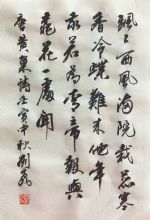 颯々西風滿院栽蕊寒
香冷蝶難来他年
我若為青帝報與
桃花一處開
唐黄巢詩壬寅中秋劉